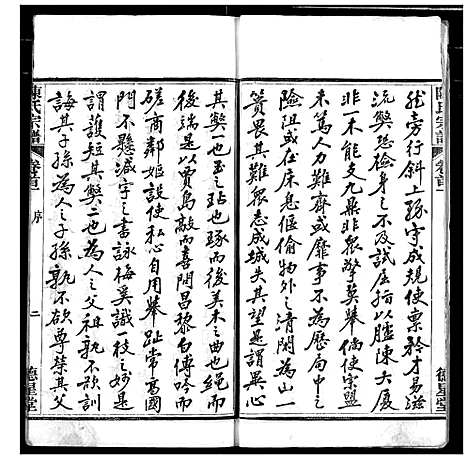 陳氏宗譜
卷首
然旁行斜上錄字成規使稟衿才易滋
流獘恐檢身之不及試屈指以臚陳大廈
非一木能支九鼎非眾擎莫舉倘使宗盟
未篤人力難齊或靡事不為歷局中之
險阻或在床息偃偷物外之清閒為山一
簣畏其難眾志成城失其望是謂異心
德星堂
其獘一也玉之玷也琢而後美木之曲也繩而
後端是以賈島敲而喜聞昌黎白傅吟而
磋商鄰嫗設使私心自用舉趾常高國
門不懸減字之書詠梅奚識一枝之妙是
謂護短其獘二也為人之父祖孰不欲訓
誨其子孫為人之子孫孰不欲尊榮其父
陳氏宗譜
卷首
序
二
德星堂